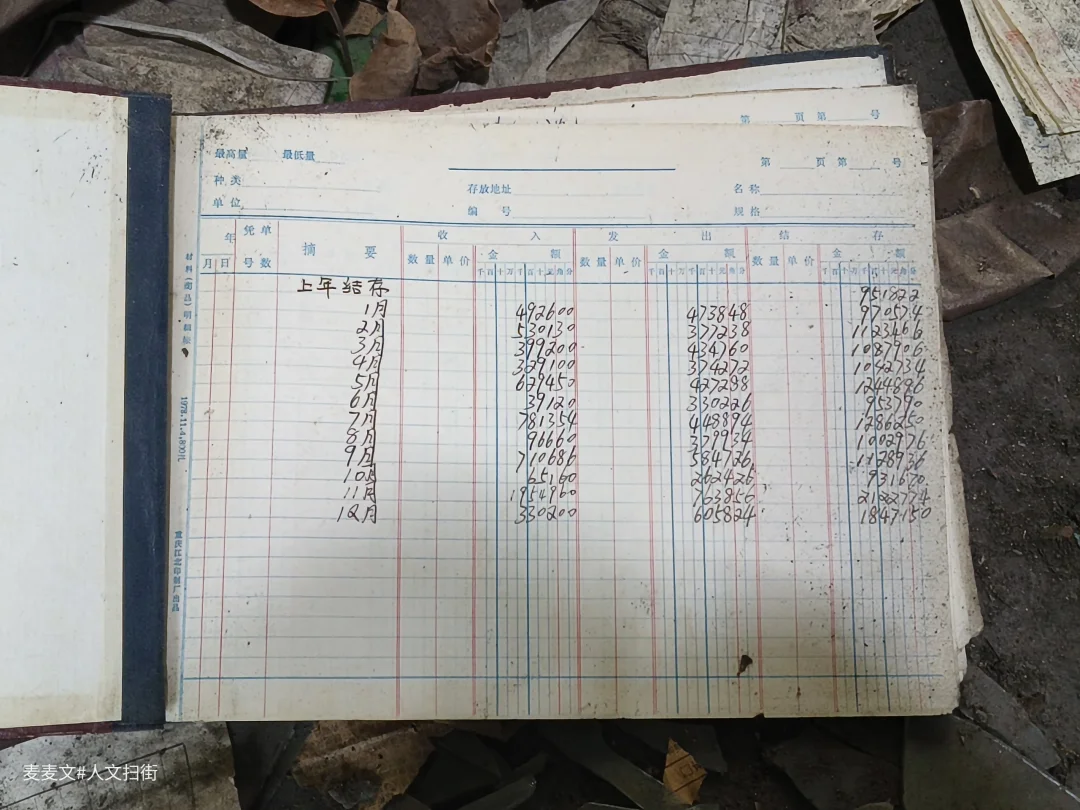 第 页 第 号
最高量 最低量 第 页 第 号
种类 存放地址 名称
单位 编 号 规格
年 凭单 摘 要 收 入 发 出 结 存
月 日 号数 数量 单价 金 额 数量 单价 金 额 数量 单价 金 额
千百十万千百十元角分 千百十万千百十元角分 千百十万千百十元角分
上年结存 951822
1月 492600 473848 970574
2月 530130 377238 1123466
3月 399200 434760 1087906
4月 329100 374272 1042734
5月 629450 427288 1244896
6月 39120 330226 953790
7月 781354 448894 1286250
8月 96660 379934 1002976
9月 710686 584726 1128936
10月 65160 262426 931670
11月 1954960 763856 2122774
12月 330200 605824 1847150
材料(商品)明细账
重庆江北印制厂出品
麦麦文#人文扫街